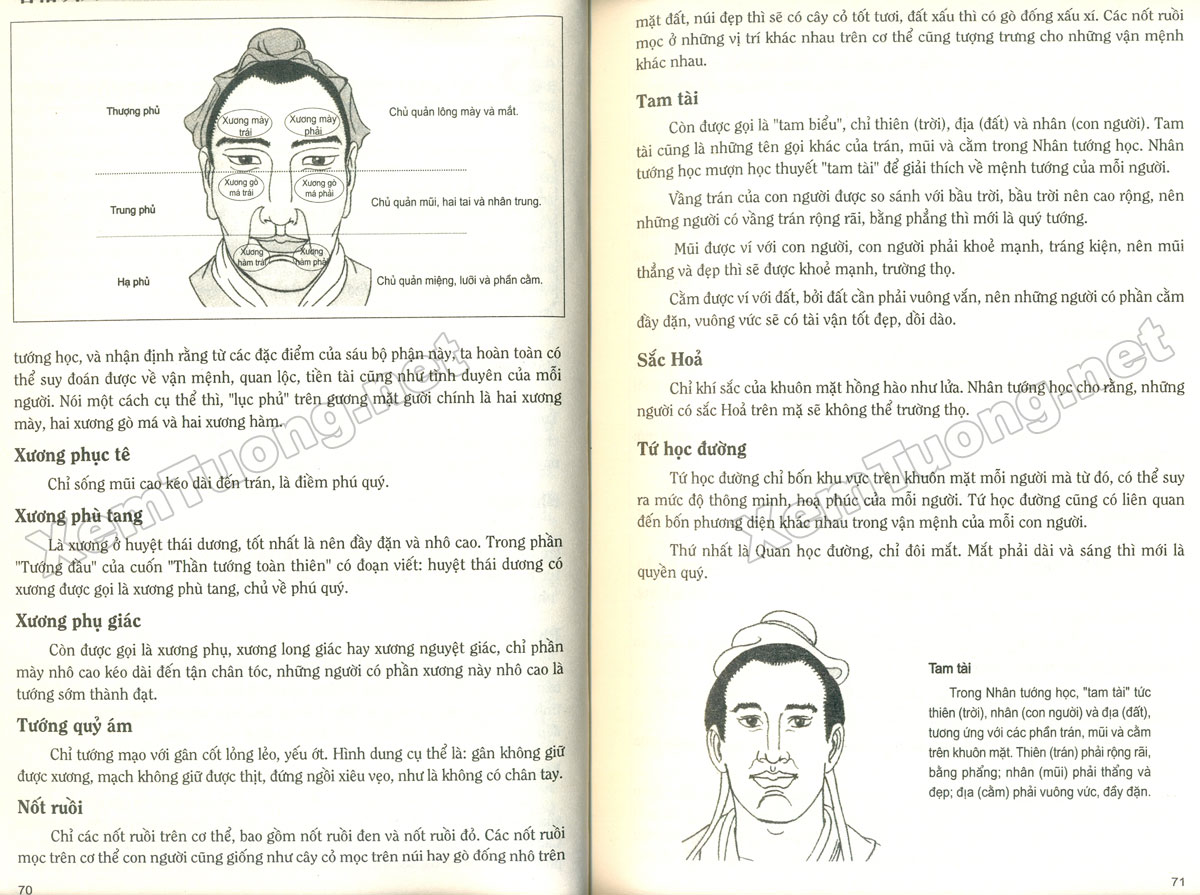 Thượng phủ
Xương mày
trái
Xương mày
phải
Chủ quản lông mày và mắt.
Xương gò
má trái
Xương gò
má phải
Trung phủ
Chủ quản mũi, hai tai và nhân trung.
Xương
hàm trái
Xương
hàm phải
Hạ phủ
Chủ quản miệng, lưỡi và phần cằm.
tướng học, và nhận định rằng từ các đặc điểm của sáu bộ phận này, ta hoàn toàn có
thể suy đoán được về vận mệnh, quan lộc, tiền tài cũng như tình duyên của mỗi
người. Nói một cách cụ thể thì, "lục phủ" trên gương mặt gười chính là hai xương
mày, hai xương gò má và hai xương hàm.
Xương phục tê
Chỉ sống mũi cao kéo dài đến trán, là điềm phú quý.
Xương phù tang
Là xương ở huyệt thái dương, tốt nhất là nên đầy đặn và nhô cao. Trong phần
"Tướng đầu" của cuốn "Thần tướng toàn thiên" có đoạn viết: huyệt thái dương có
xương được gọi là xương phù tang, chủ về phú quý.
Xương phụ giác
Còn được gọi là xương phụ, xương long giác hay xương nguyệt giác, chỉ phần
mày nhô cao kéo dài đến tận chân tóc, những người có phần xương này nhô cao là
tướng sớm thành đạt.
Tướng quỷ ám
Chỉ tướng mạo với gân cốt lỏng lẻo, yếu ớt. Hình dung cụ thể là: gân không giữ
được xương, mạch không giữ được thịt, đứng ngồi xiêu vẹo, như là không có chân tay.
Nốt ruồi
Chỉ các nốt ruồi trên cơ thể, bao gồm nốt ruồi đen và nốt ruồi đỏ. Các nốt ruồi
mọc trên cơ thể con người cũng giống như cây cỏ mọc trên núi hay gò đống nhô trên
70
mặt đất, núi đẹp thì sẽ có cây cỏ tốt tươi, đất xấu thì có gò đống xấu xí. Các nốt ruồi
mọc ở những vị trí khác nhau trên cơ thể cũng tượng trưng cho những vận mệnh
khác nhau.
Tam tài
Còn được gọi là "tam biểu", chỉ thiên (trời), địa (đất) và nhân (con người). Tam
tài cũng là những tên gọi khác của trán, mũi và cằm trong Nhân tướng học. Nhân
tướng học mượn học thuyết "tam tài" để giải thích về mệnh tướng của mỗi người.
Vầng trán của con người được so sánh với bầu trời, bầu trời nên cao rộng, nên
những người có vầng trán rộng rãi, bằng phẳng thì mới là quý tướng.
Mũi được ví với con người, con người phải khoẻ mạnh, tráng kiện, nên mũi
thẳng và đẹp thì sẽ được khoẻ mạnh, trường thọ.
Cằm được ví với đất, bởi đất cần phải vuông vắn, nên những người có phần cằm
đầy dặn, vuông vức sẽ có tài vận tốt đẹp, dồi dào.
Sắc Hoả
Chỉ khí sắc của khuôn mặt hồng hào như lửa. Nhân tướng học cho rằng, những
người có sắc Hoả trên mặ sẽ không thể trường thọ.
Tứ học đường
Tứ học đường chỉ bốn khu vực trên khuôn mặt mỗi người mà từ đó, có thể suy
ra mức độ thông minh, hoạ phúc của mỗi người. Tứ học đường cũng có liên quan
đến bốn phương diện khác nhau trong vận mệnh của mỗi con người.
Thứ nhất là Quan học đường, chỉ đôi mắt. Mắt phải dài và sáng thì mới là
quyền quý.
Tam tài
Trong Nhân tướng học, "tam tài" tức
thiên (trời), nhân (con người) và địa (đất),
tương ứng với các phần trán, mũi và cằm
trên khuôn mặt. Thiên (trán) phải rộng rãi,
bằng phẳng; nhân (mũi) phải thẳng và
đẹp; địa (cằm) phải vuông vức, đầy đặn.
71
XemTuong.net
XemTuong.net